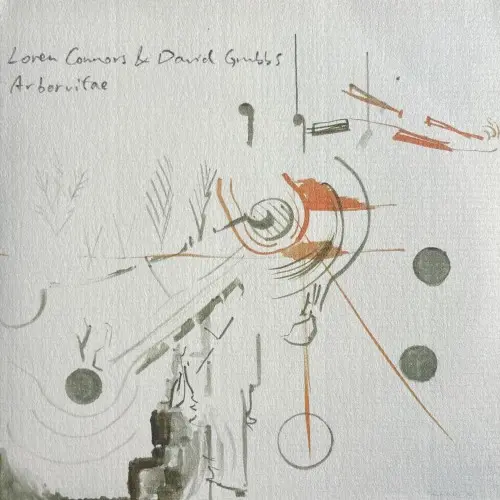 Loren Connors & David Grubbs
Arborvitae